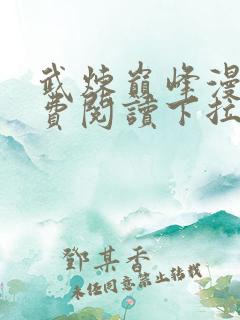 武煉巔峰漫
費閱讀下拉
鄧某香
未經同意禁止轉載